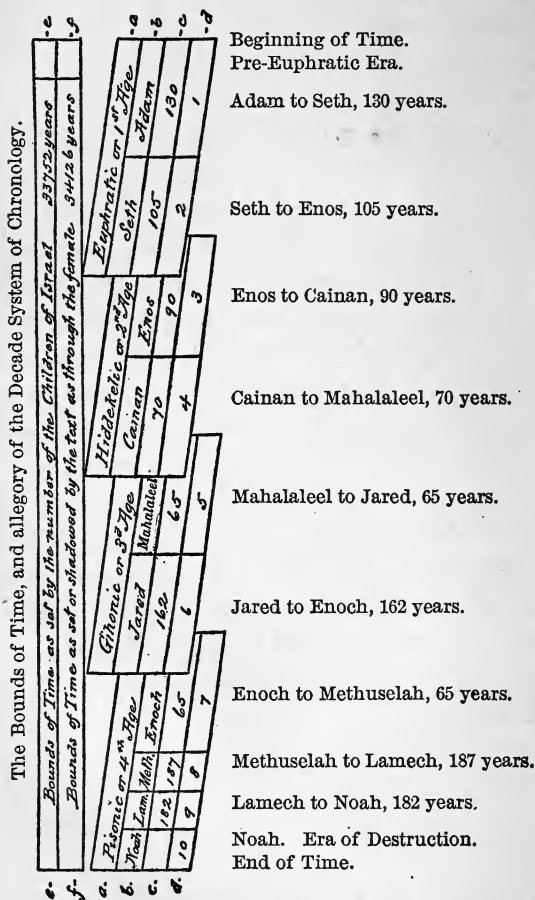 The Bounds of Time, and allegory of the Decade System of Chronology.
-e
-f
Bounds of Time as set by the number of the Children of Israel 33752 years
Bounds of Time as set or shadowed by the text as through the female 34126 years
e.
f.
-a
-b
-c
-d
Euphratic or 1st Age
Adam
130
1
Seth
105
2
Hiddekelic or 2nd Age
Enos
90
3
Cainan
70
4
Gihonic or 3d Age
Mahalaleel
65
5
Jared
162
6
Pisonic or 4th Age
Enoch
65
7
Meth.
187
8
Lam.
182
9
Noah
10
a.
b.
c.
d.
Beginning of Time.
Pre-Euphratic Era.
Adam to Seth, 130 years.
Seth to Enos, 105 years.
Enos to Cainan, 90 years.
Cainan to Mahalaleel, 70 years.
Mahalaleel to Jared, 65 years.
Jared to Enoch, 162 years.
Enoch to Methuselah, 65 years.
Methuselah to Lamech, 187 years.
Lamech to Noah, 182 years.
Noah. Era of Destruction.
End of Time.